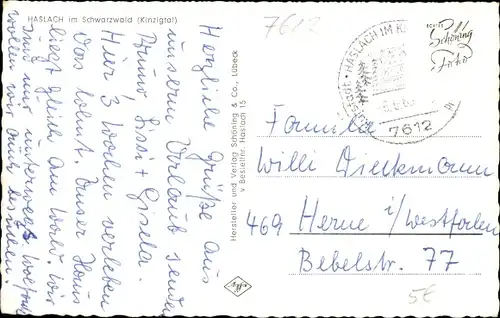 HASLACH im Schwarzwald (Kinzigtal)
7612
ECHTES
Schöning
Foto
HASLACH IM K
7612
Herzliche Grüße aus
unserem Urlaub senden
Bruno, Sissi + Gisela.
Hier 3 Wochen verleben
Das lohnt. Unser Haus
liegt gleich am Wald. Wir
sind nur unterwegs
wollen wir
Hersteller und Verlag Schöning & Co., Lübeck
v Bestellnr. Haslach 15
Familie
Willi Dieckmann
469 Herne i/Westfalen
Bebelstr. 77
5€